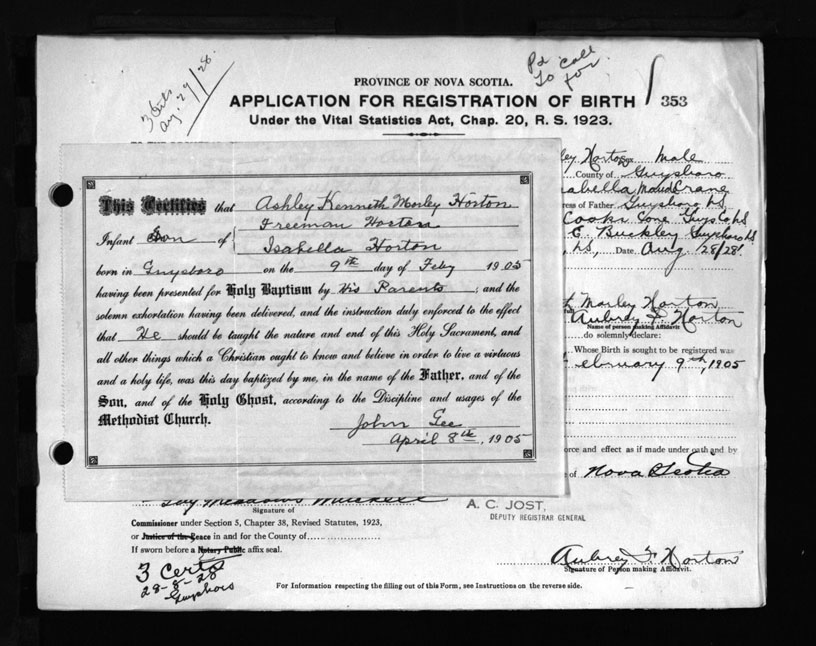 3 Certs
Aug. 29/28.
Pd
To call
for
PROVINCE OF NOVA SCOTIA.
APPLICATION FOR REGISTRATION OF BIRTH 353
Under the Vital Statistics Act, Chap. 20, R. S. 1923.
This Certifies that Ashley Kenneth Morley Horton
Freeman Horton
Infant Son of
Isabella Horton
born in Guysboro on the 9th day of Feby 1905
having been presented for Holy Baptism by His Parents; and the
solemn exhortation having been delivered, and the instruction duly enforced to the effect
that He should be taught the nature and end of this Holy Sacrament, and
all other things which a Christian ought to know and believe in order to live a virtuous
and a holy life, was this day baptized by me, in the name of the Father, and of the
Son, and of the Holy Ghost, according to the Discipline and usages of the
Methodist Church.
John Gee
April 8th, 1905
ley Horton Sex Male
County of Guysboro
abella Maud Crane
ress of Father Guysboro NS
Cooks Cove Guys Co NS
E. Buckley Guysboro NS
NS, Date Aug 28/28.
h Morley Horton
Aubrey F. Horton
Name of person making Affidavit
do solemnly declare:
Whose Birth is sought to be registered was
February 9th, 1905
orce and effect as if made under oath and by
e of Nova Scotia
Guy Meadows
Signature of
A. C. JOST,
DEPUTY REGISTRAR GENERAL
Commissioner under Section 5, Chapter 38, Revised Statutes, 1923,
or Justice of the Peace in and for the County of
If sworn before a Notary Public affix seal.
3 Certs
28-8-28
Guysboro
Aubrey F Horton
Signature of Person making Affidavit.
For Information respecting the filling out of this Form, see Instructions on the reverse side.